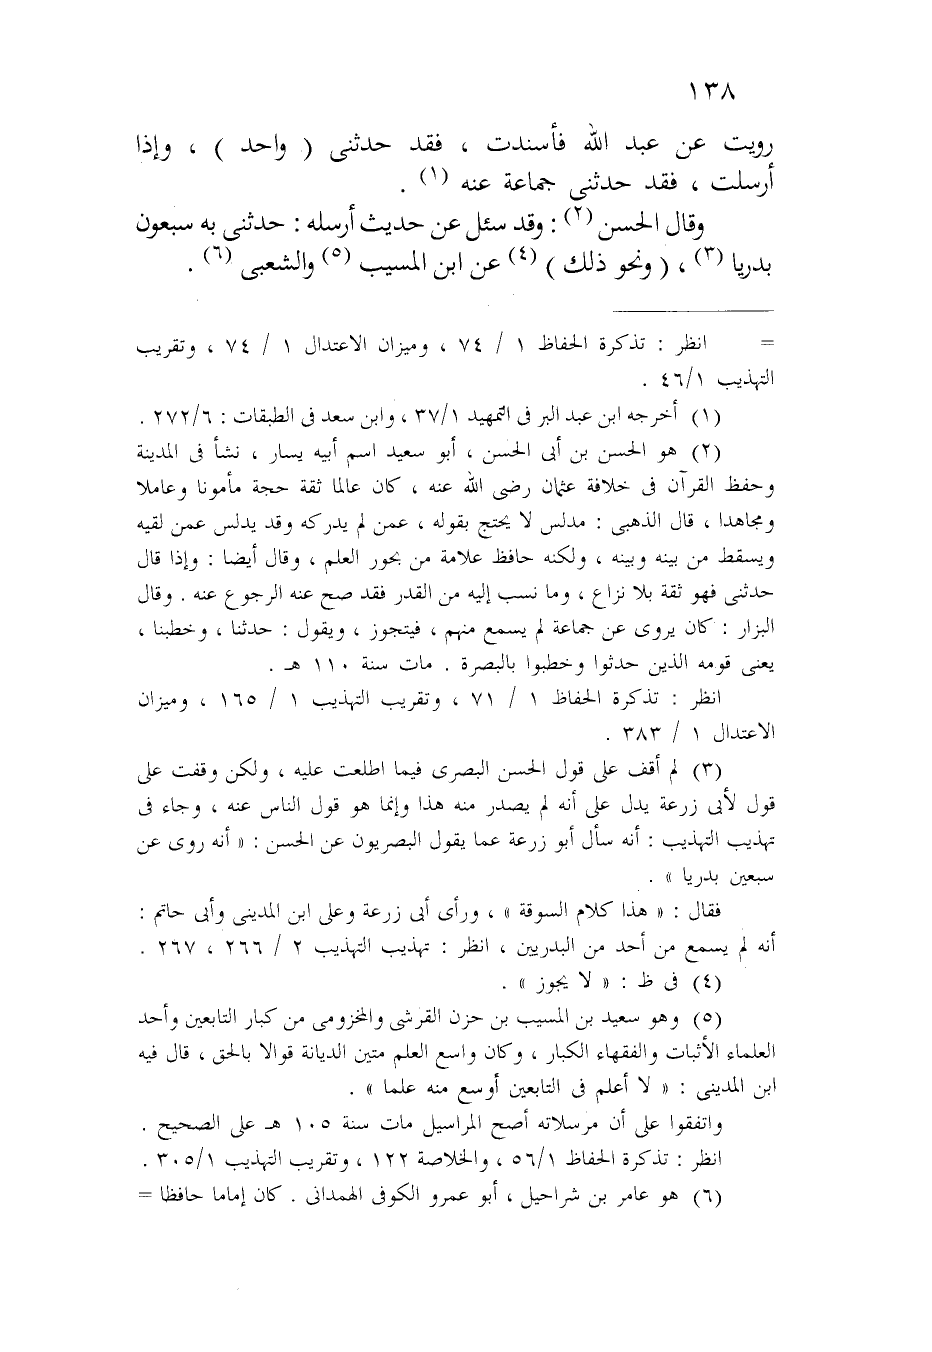 ١٣٨
رويت عن عبد الله فأسندت ، فقد حدثنى ( واحد ) ، وإذا
أرسلت ، فقد حدثنى جماعة عنه (١) .
وقال الحسن (٢) : وقد سئل عن حديث أرسله : حدثنى به سبعون
بدريا (٣) ، ( ونحو ذلك ) (٤) عن ابن المسيب (٥) والشعبى (٦) .
= انظر : تذكرة الحفاظ ١ / ٧٤ ، وميزان الاعتدال ١ / ٧٤ ، وتقريب
التهذيب ٤٦/١ .
(١) أخرجه ابن عبد البر فى التمهيد ٣٧/١ ، وابن سعد فى الطبقات : ٢٧٢/٦ .
(٢) هو الحسن بن أبى الحسن ، أبو سعيد اسم أبيه يسار ، نشأ فى المدينة
وحفظ القرآن فى خلافة عثمان رضى الله عنه ، كان عالما ثقة حجة مأمونا وعاملا
ومجاهدا ، قال الذهبى : مدلس لا يحتج بقوله ، عمن لم يدركه وقد يدلس عمن لقيه
ويسقط من بينه وبينه ، ولكنه حافظ علامة من بحور العلم ، وقال أيضا : وإذا قال
حدثنى فهو ثقة بلا نزاع ، وما نسب إليه من القدر فقد صح عنه الرجوع عنه . وقال
البزار : كان يروى عن جماعة لم يسمع منهم ، فيتجوز ، ويقول : حدثنا ، وخطبنا ،
يعنى قومه الذين حدثوا وخطبوا بالبصرة . مات سنة ١١٠ هـ .
انظر : تذكرة الحفاظ ١ / ٧١ ، وتقريب التهذيب ١ / ١٦٥ ، وميزان
الاعتدال ١ / ٣٨٣ .
(٣) لم أقف على قول الحسن البصرى فيما اطلعت عليه ، ولكن وقفت على
قول لأبى زرعة يدل على أنه لم يصدر منه هذا وإنما هو قول الناس عنه ، وجاء فى
تهذيب التهذيب : أنه سأل أبو زرعة عما يقول البصريون عن الحسن : « أنه روى عن
سبعين بدريا » .
فقال : « هذا كلام السوقة » ، ورأى أبى زرعة وعلى ابن المدينى وأبى حاتم :
أنه لم يسمع من أحد من البدريين ، انظر : تهذيب التهذيب ٢ / ٢٦٦ ، ٢٦٧ .
(٤) فى ظ : « لا يجوز » .
(٥) وهو سعيد بن المسيب بن حزن القرشى والمخزومى من كبار التابعين وأحد
العلماء الأثبات والفقهاء الكبار ، وكان واسع العلم متين الديانة قوالا بالحق ، قال فيه
ابن المدينى : « لا أعلم فى التابعين أوسع منه علما » .
واتفقوا على أن مرسلاته أصح المراسيل مات سنة ١٠٥ هـ على الصحيح .
انظر : تذكرة الحفاظ ٥٦/١ ، والخلاصة ١٢٢ ، وتقريب التهذيب ٣٠٥/١ .
(٦) هو عامر بن شراحيل ، أبو عمرو الكوفى الهمدانى . كان إماما حافظا =